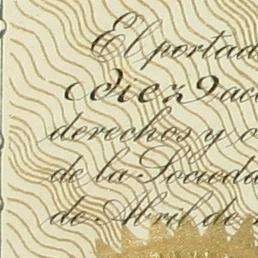 El portad
diez Acc
derechos y o
de la Socieda
de Abril de